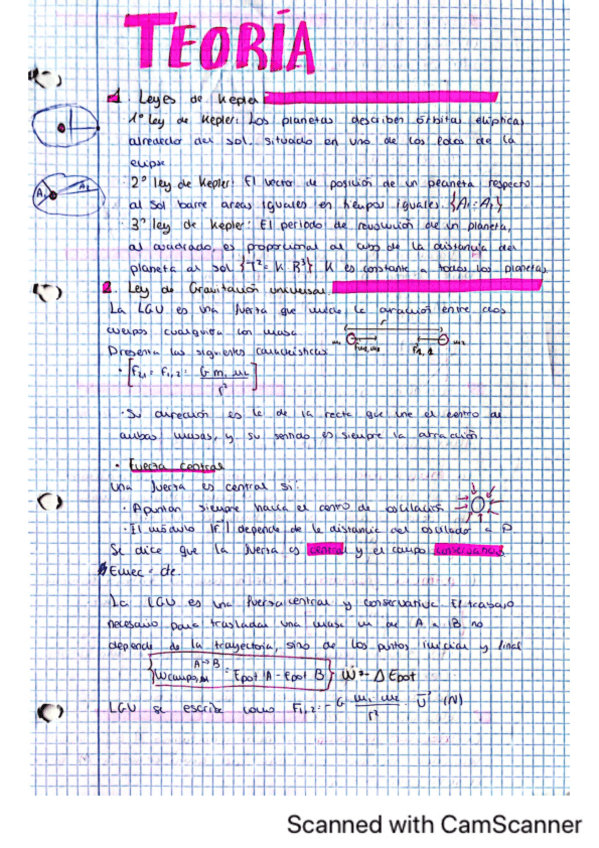 TEORÍA
1. Leyes de Kepler
1º ley de Kepler: Los planetas describen órbitas elípticas
alrededor del sol. situado en uno de los focos de la
elipse
2º ley de Kepler: El vector de posición de un planeta respecto
al Sol barre areas iguales en tiempos iguales. {A₁ = A₂}
3º ley de Kepler: El periodo de revolución de un planeta,
al cuadrado, es proporcional al cubo de la distancia del
planeta al sol {T² = K R³} K es constante a todos los planetas
2. Ley de Gravitación universal
La LGU es una fuerza que mide la atracción entre dos
cuerpos cualquiera con masa.
Presenta las siguientes características
r
m₁ m₂
F₂,₁ = F₁,₂ = G m₁ m₂ / r²
· Su dirección es la de la recta que une el centro de
ambas masas, y su sentido es siempre la atracción.
· Fuerza central
Una fuerza es central si:
· Apuntan siempre hacia el centro de oscilación
· El módulo |F| depende de la distancia del oscilador a P.
Se dice que la fuerza es central y el campo conservativo
Emec = cte.
La LGU es una fuerza central y conservativa. El trabajo
necesario para trasladar una masa m de A a B no
depende de la trayectoria, sino de los puntos inicial y final
A→B
W campo, m = Epot A - Epot B W = - Δ Epot
LGU se escribe como F₁,₂ = - G m₁ m₂ / r² · U (N)
Scanned with CamScanner